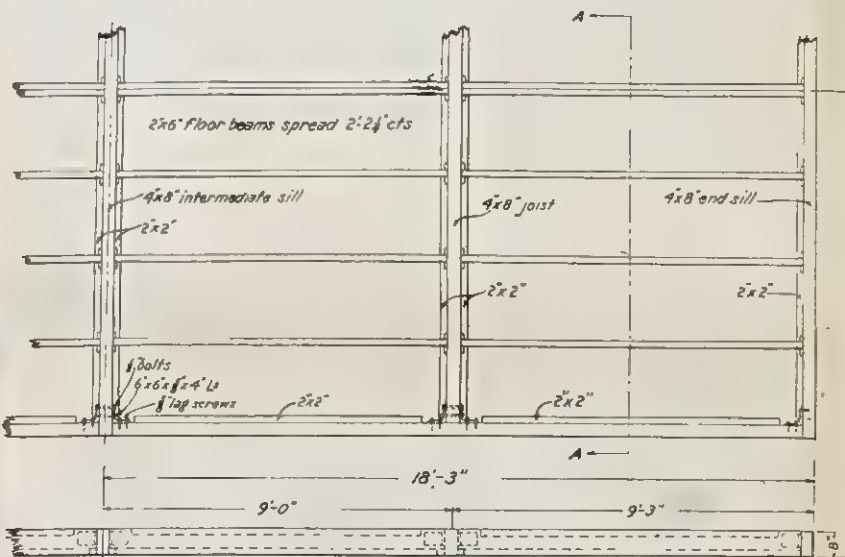 A
2"x6" floor beams spread 2'-2¼" cts
4"x8" intermediate sill
4"x8" joist
4"x8" end sill
2"x2"
2"x2"
2"x2"
bolts
6"x6"x x4" Ls
lag screws
2"x2"
2"x2"
A
18'-3"
9'-0"
9'-3"
8"